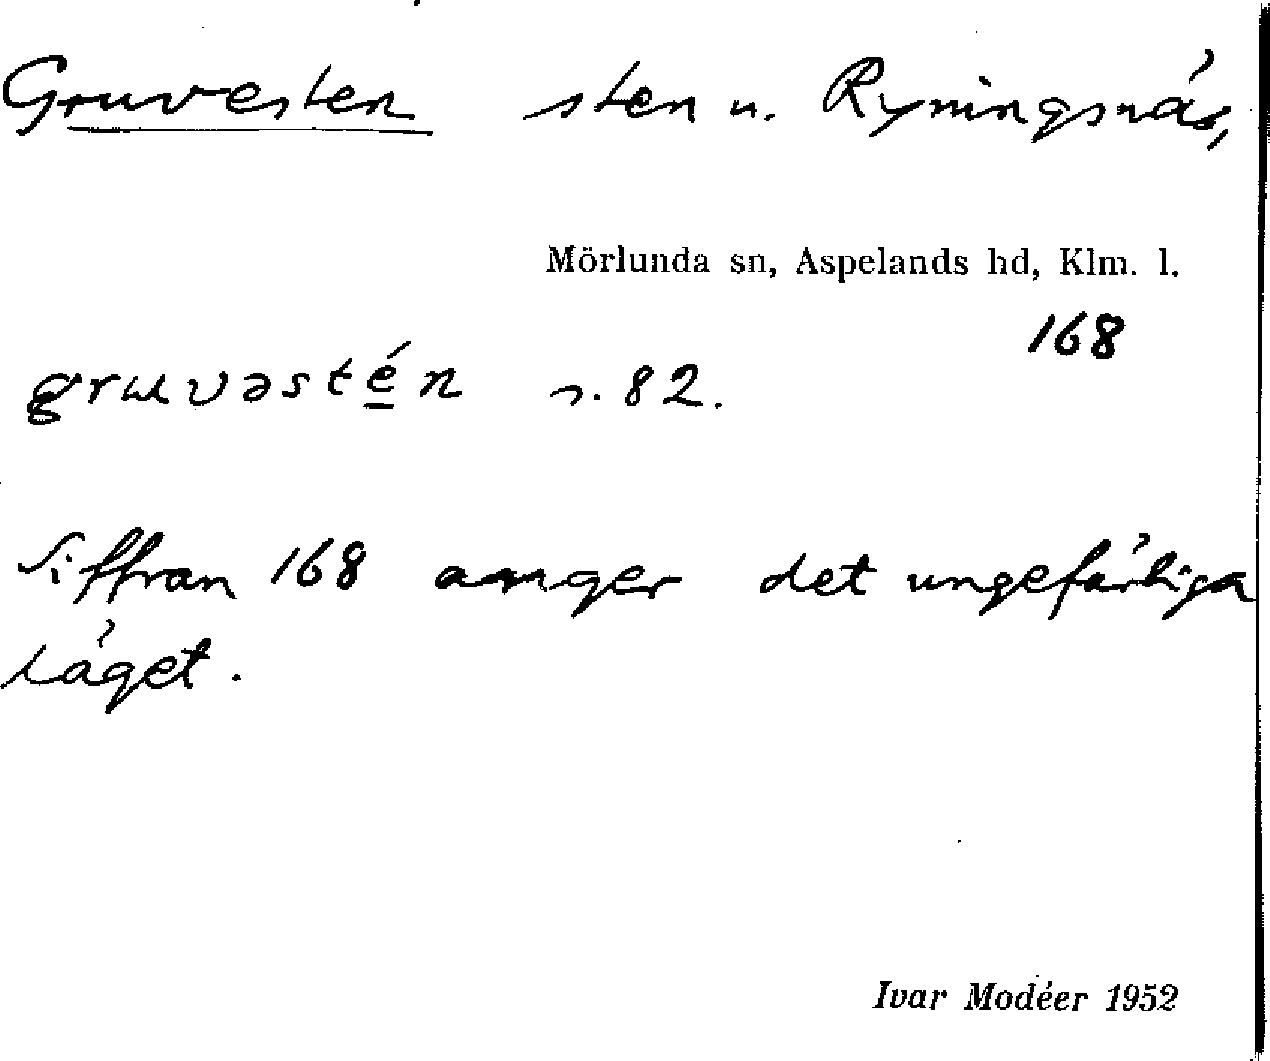 Gruvesten sten u. Ryningsnäs,
Mörlunda sn, Aspelands hd, Klm. l.
168
gruvəsté̲n s. 82.
Siffran 168 anger det ungefärliga
läget.
Ivar Modéer 1952